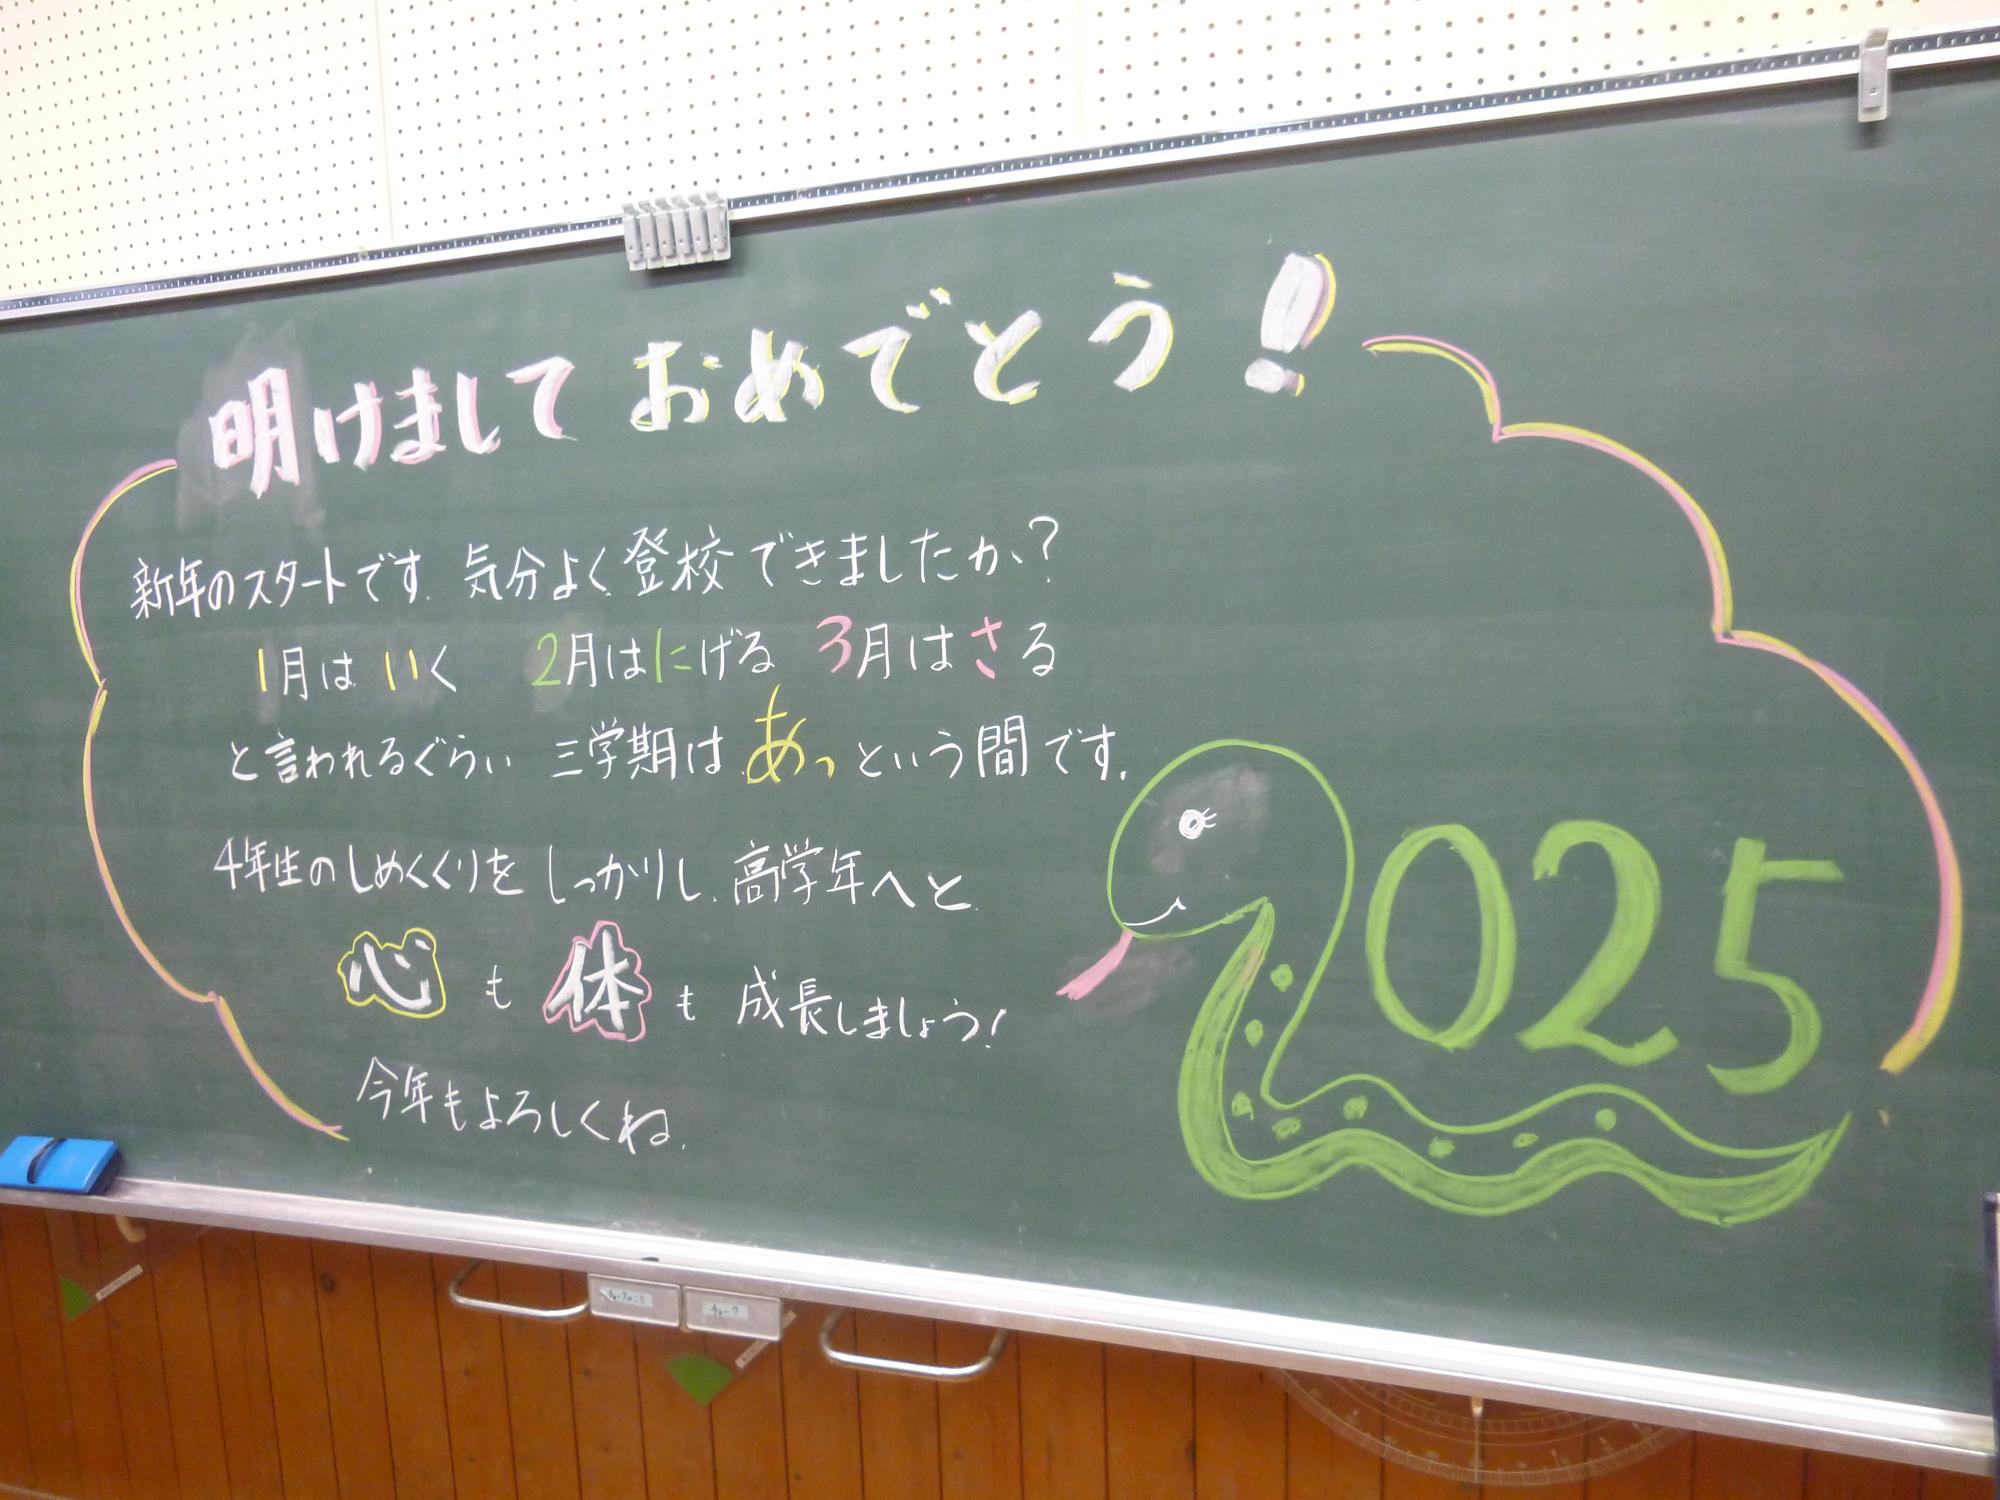 明けまして おめでとう!
新年のスタートです。気分よく登校できましたか?
1月は いく 2月はにげる 3月はさる
と言われるぐらい 三学期は あっという間です。
4年生のしめくくりを しっかりし、高学年へと
心も体も 成長しましょう!
今年もよろしくね。
2025